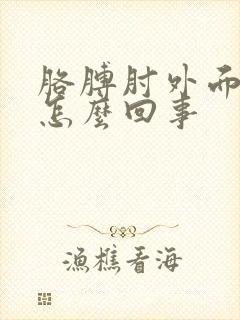 胳膊肘外而
怎麼回事
漁樵看海